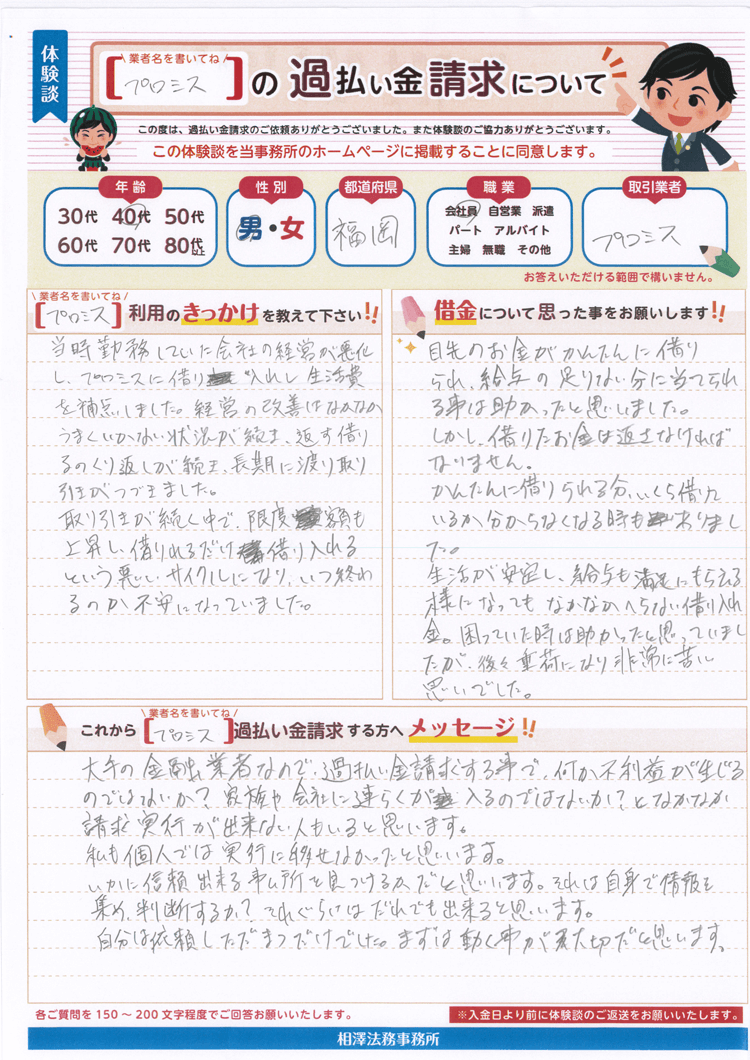 体験談
業者名を書いてね
[プロミス]の過払い金請求について
この度は、過払い金請求のご依頼ありがとうございました。また体験談のご協力ありがとうございます。
この体験談を当事務所のホームページに掲載することに同意します。
年齢
30代 40代 50代
60代 70代 80代以上
性別
男・女
都道府県
福岡
職業
会社員 自営業 派遣
パート アルバイト
主婦 無職 その他
取引業者
プロミス
お答えいただける範囲で構いません。
業者名を書いてね
[プロミス]利用のきっかけを教えて下さい!!
当時勤務していた会社の経営が悪化
し、プロミスに借り入れし生活費
を補点しました。経営の改善はなかなか
うまくいかない状況が続き、返す借り
るのくり返しが続き、長期に渡り取り
引きがつづきました。
取り引きが続く中で、限度額も
上昇し、借りれるだけ借り入れる
という悪いサイクルになり、いつ終わ
るのか不安になっていました。
借金について思った事をお願いします!!
目先のお金がかんたんに借り
られ、給与の足りない分に当てられ
る事は助かったと思いました。
しかし、借りたお金は返さなければ
なりません。
かんたんに借りられる分、いくら借りて
いるか分からなくなる時もありまし
た。
生活が安定し、給与も満足にもらえる
様になってもなかなかへらない借り入れ
金。困っていた時は助かったと思っていまし
たが、後々重荷になり非常に苦しい
思いでした。
業者名を書いてね
これから[プロミス]過払い金請求する方へメッセージ!!
大手の金融業者なので、過払い金請求する事で、何か不利益が生じる
のではないか?家族や会社に連らくが入るのではないか?となかなか
請求実行が出来ない人もいると思います。
私も個人では実行に移せなかったと思います。
いかに信頼出来る事ム所を見つけるかだと思います。それは自身で情報を
集め、判断するか?それぐらいはだれでも出来ると思います。
自分は依頼しただまつだけでした。まずは動く事が大切だと思います。
各ご質問を150〜200文字程度でご回答お願いいたします。
※入金日より前に体験談のご返送をお願いいたします。
相澤法務事務所